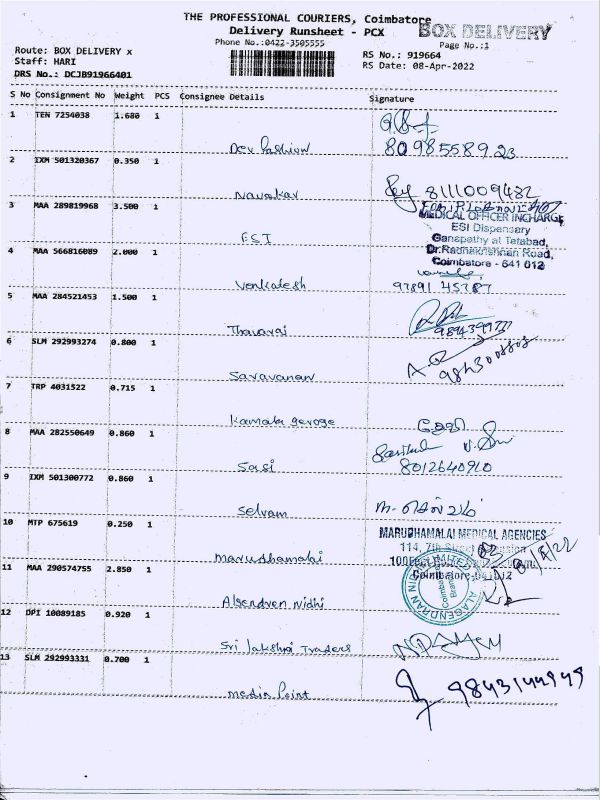 THE PROFESSIONAL COURIERS, Coimbatore
Delivery Runsheet - PCX
BOX DELIVERY
Phone No.:0422-3505555
Page No.:1
Route: BOX DELIVERY x
Staff: HARI
DRS No.: DCJB91966401
RS No.: 919664
RS Date: 08-Apr-2022
S No Consignment No Weight PCS Consignee Details Signature
1 TEN 7254038 1.680 1
Dev fashion 8098558923
2 IXM 501320367 0.350 1
Navakar 8111009482
3 MAA 289819968 3.500 1
MEDICAL OFFICER INCHARGE
ESI Dispensary
ESI
Ganapathy at Tatabad,
4 MAA 566816089 2.000 1
Dr.Radhakrishnan Road,
Coimbatore - 641 012
Venkatesh
5 MAA 284521453 1.500 1
Thavaraj
6 SLM 292993274 0.800 1
Saravanan
7 TRP 4031522 0.715 1
Kamala george
8 MAA 282550649 0.860 1
Sasi 8012640910
9 IXM 501300772 0.860 1
Selvam
10 MTP 675619 0.250 1
MARUDHAMALAI MEDICAL AGENCIES
114, 7th Street
Marudhamalai
Coimbatore
11 MAA 290574755 2.850 1
Nidhi
12 DPI 10089185 0.920 1
Sri lakshmi Traders
13 SLM 292993331 0.700 1
Media Point